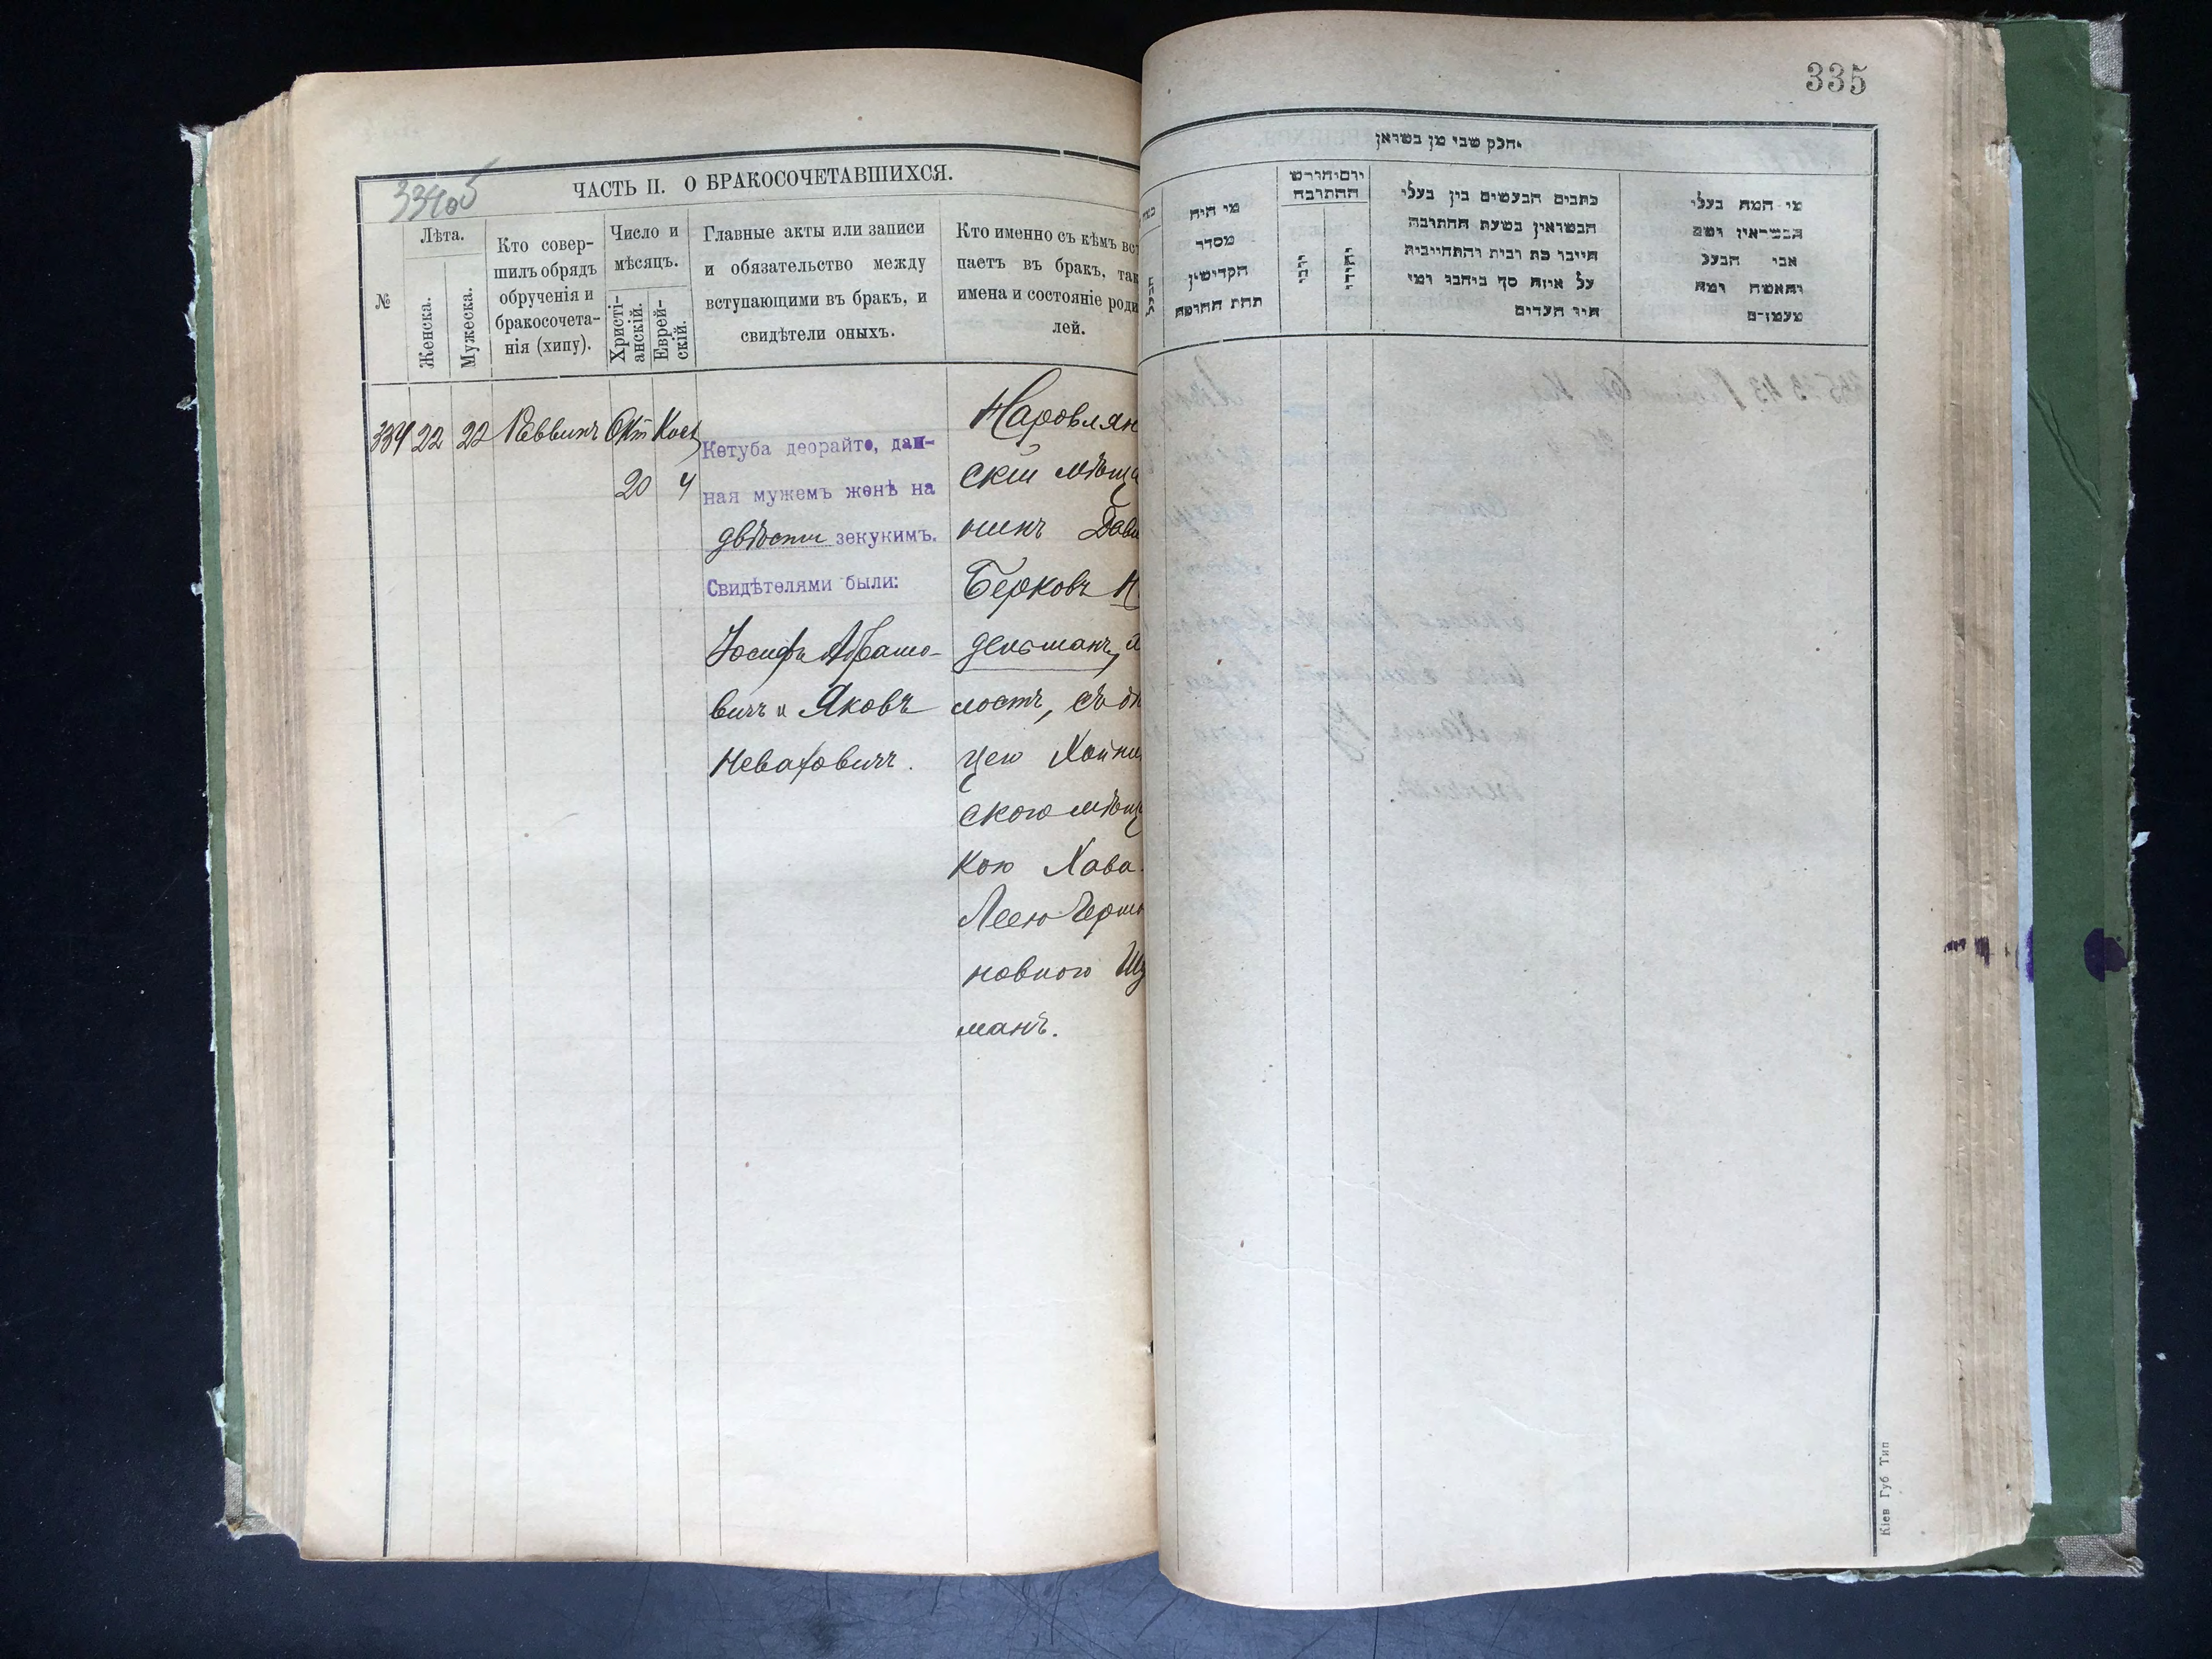 334об
ЧАСТЬ II. О БРАКОСОЧЕТАВШИХСЯ.
№
Лѣта.
Женска.
Мужеска.
Кто совер-
шилъ обрядъ
обрученія и
бракосочета-
нія (хипу).
Число и
мѣсяцъ.
Христі-
анскій.
Еврей-
скій.
Главные акты или записи
и обязательство между
вступающими въ бракъ, и
свидѣтели оныхъ.
Кто именно съ кѣмъ вст
паетъ въ бракъ, так
имена и состояніе роди
лей.
334 22 22 Раввинъ Окт
20 4
Кетуба деорайто, дан-
ная мужемъ женѣ на
двѣсти зекукимъ.
Свидѣтелями были:
Іосифъ Абрамо-
вичъ и Яковъ
Неваховичъ.
Наровлян
скій мѣща
нинъ Дави
Берковъ Н
дельманъ,
лостъ, съ
цею Хойни
скою мѣщ
кою Хава-
Леею Герш
новною Шу
манъ.
335
חלק שני מן בשואן
מי היה
מסדר
הקדישין
תחת החופה
יום וחודש
החתונה
כתבים הנעשים בין בעלי
הנשואין בשעת החתונה
חייבו כת ובית והתחייבות
על איזה סך ביחבו ומי
היו העדים
מי המה בעלי
הנשואין ושם
אבי הבעל
והאשה ומה
מעמדם
Кіев Губ Тип